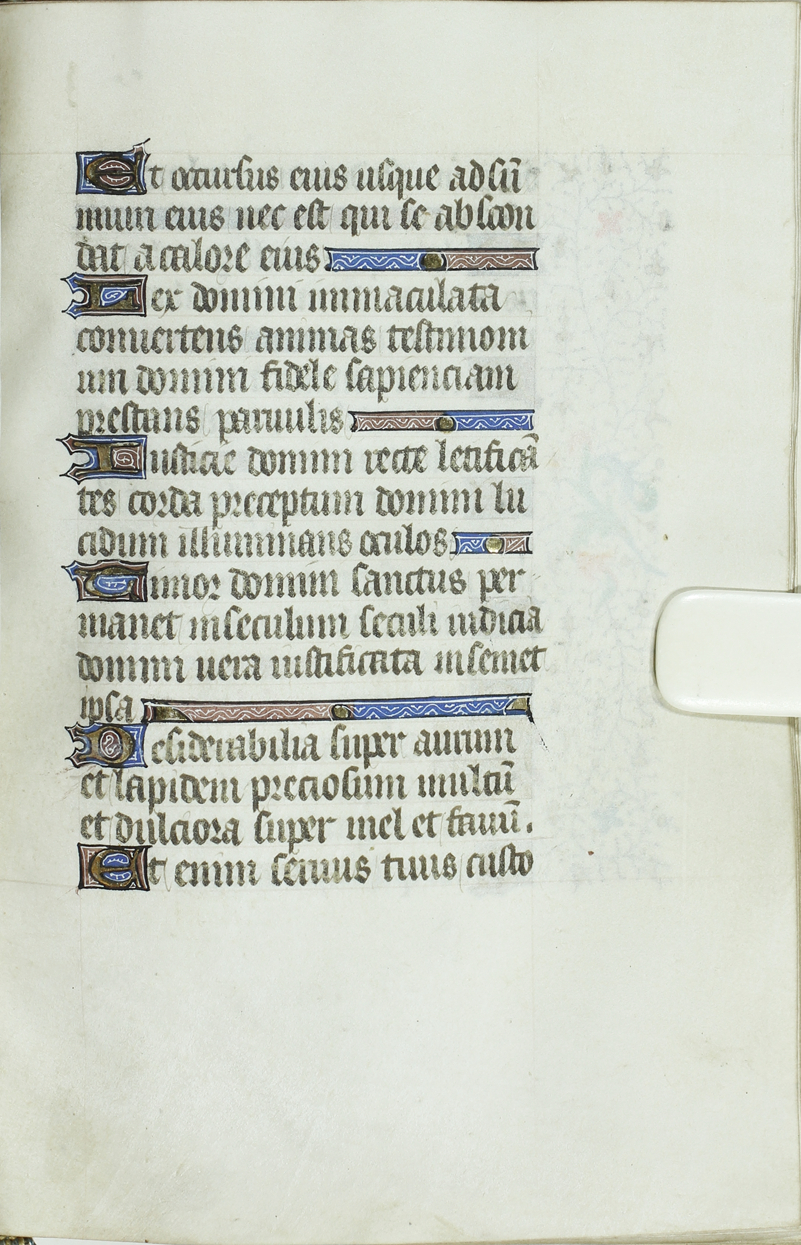 Et occursus eius usque ad sū
mum eius nec est qui se abscon
dat a calore eius
Lex domini immaculata
conuertens animas testimoni
um domini fidele sapienciam
prestans paruulis
Iusticie domini recte letificā
tes corda preceptum domini lu
cidum illuminans oculos
Timor domini sanctus per
manet in seculum seculi iudicia
domini uera iustificata in semet
ipsa
Desiderabilia super aurum
et lapidem preciosum multū
et dulciora super mel et fauū.
Et enim seruus tuus custo